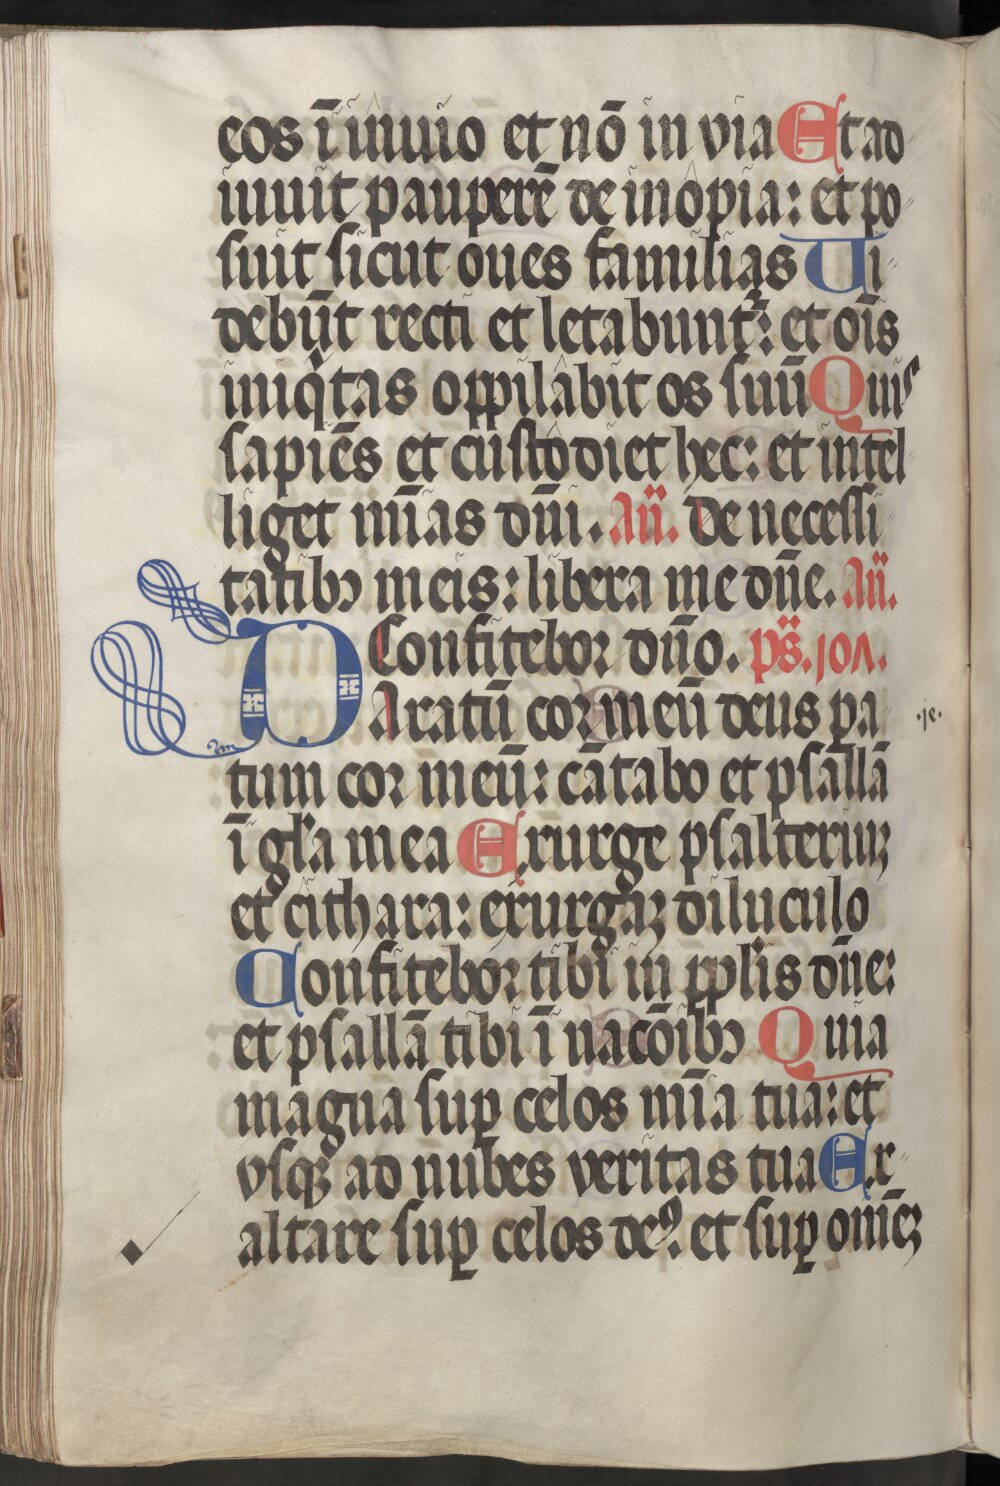 eos ī inuio et nō in via Et ad
iuuit pauperē de inopia: et po
suit sicut oues familias Ui
debūt recti et letabunt᷑: et oīs
iniqͥtas oppilabit os suū Quis
sapiēs et custodiet hec: et intel
liget mīas dn̄i. Añ. De necessi
tatibꝫ meis: libera me dn̄e. Añ.
Confitebor dn̄o. ps̄. 107.
Paratū cor meū deus pa
·je·
tum cor meū: cātabo et psallā
ī gl̄a mea Exurge psalteriuꝫ
et cithara: exurgaꝫ diluculo
Confitebor tibi in ppl̄is dn̄e:
et psallā tibi ī nacōibꝫ Quia
magna suꝑ celos mīa tua: et
vsqꝫ ad nubes veritas tua Ex
altare suꝑ celos deꝰ: et suꝑ omēꝫ